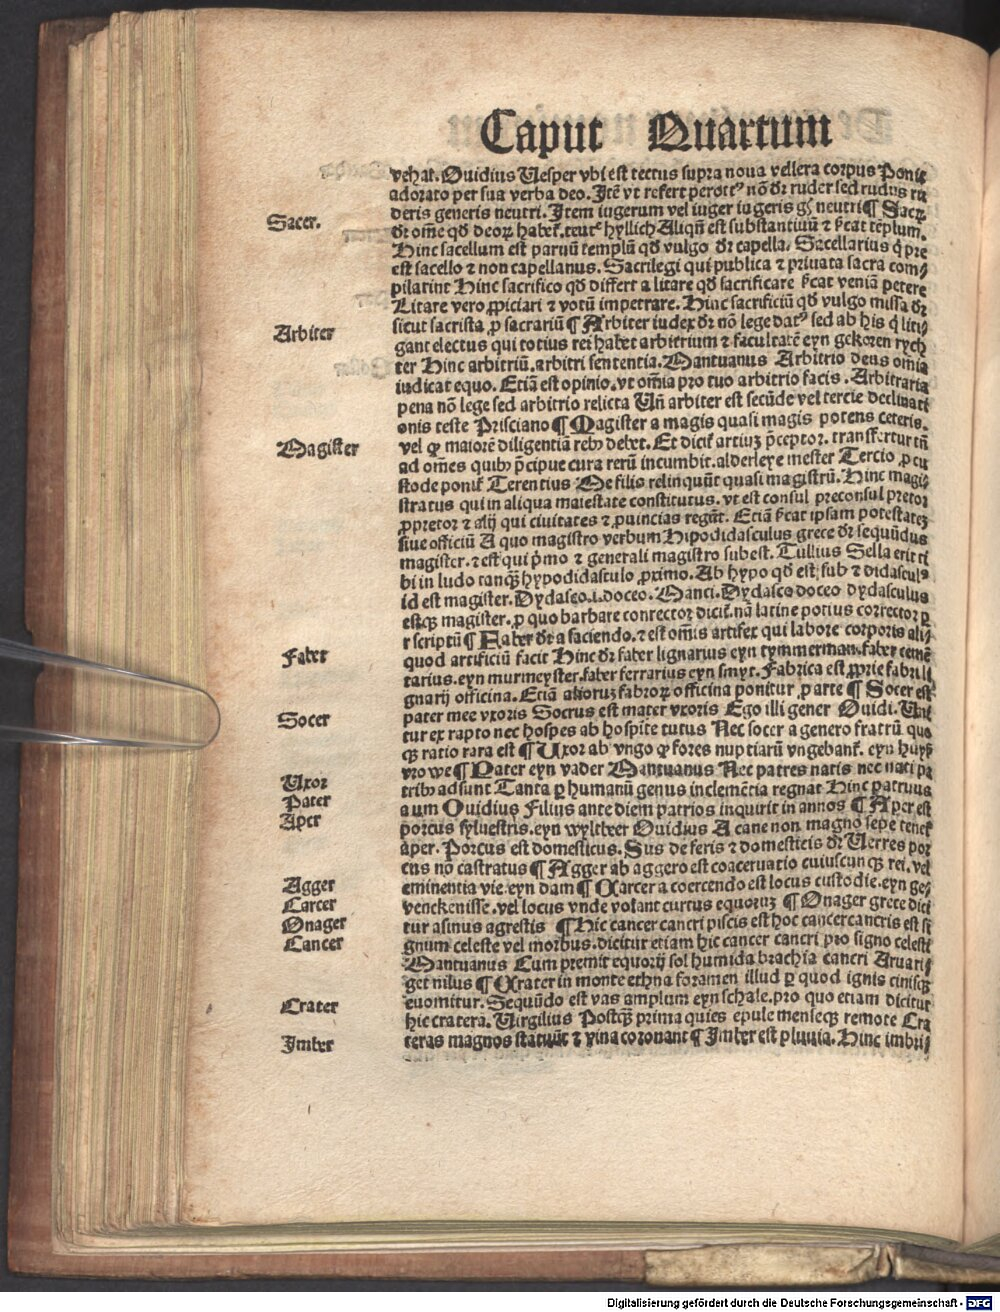 Caput Quartum
vehat. Ouidius Uesper vbi est tectus supra noua vellera corpus Ponit
adorato per sua verba deo. Itē vt refert perottꝰ nō dr̄ ruder sed rudus ru
deris generis neutri. Item iugerum vel iuger iugeris gn̄ neutri ¶ Sacer
Sacer.
dr̄ om̄e qd̄ deoꝝ habet̉. teutē hyllich Aliqn̄ est substantiuū ⁊ sc̄at tēplum.
Hinc sacellum est paruū templū qd̄ vulgo dr̄ capella. Sacellarius q̇ pre
est sacello ⁊ non capellanus. Sacrilegi qui publica ⁊ priuata sacra com⸗
pilarint Hinc sacrifico qd̄ differt a litare qd̄ sacrificare sc̄at veniā petere
Litare vero ꝓpiciari ⁊ votū impetrare. Hinc sacrificiū qd̄ vulgo missa dr̄
sicut sacrista ꝓ sacrariū ¶ Arbiter iudex dr̄ nō lege datꝰ sed ab his q̇ liti⸗
Arbiter
gant electus qui totius rei habet arbitrium ⁊ facultatē eyn gekoren rych
ter Hinc arbitriū. arbitri sententia. Mantuanus Arbitrio deus om̄ia
iudicat equo. Etiā est opinio. vt om̄ia pro tuo arbitrio facis. Arbitraria
pena nō lege sed arbitrio relicta Un̄ arbiter est secūde vel tercie declinati
onis teste Prisciano ¶ Magister a magis quasi magis potens ceteris.
Magister
vel ꝙ maiorē diligentiā rebꝰ debet. Et dicit̉ artiuꝫ p̄ceptor. transfertur tn̄
ad om̄es quibꝰ p̄cipue cura rerū incumbit. alderleye mester Tercio ꝓ cu
stode ponit̉ Terentius Me filijs relinquūt quasi magistrū. Hinc magi⸗
stratus qui in aliqua maiestate constitutus. vt est consul preconsul pretor
ꝓpretor ⁊ alij qui ciuitates ⁊ ꝓuincias regūt. Etiā sc̄at ipsam potestateꝫ
siue officiū A quo magistro verbum Hipodidasculus grece dr̄ sequūdus
magister. ⁊ est qui p̄mo ⁊ generali magistro subest. Tullius Sella erit ti
bi in ludo tanqꝫ hypodidasculo ꝓximo. Ab hypo qd̄ est sub ⁊ didasculꝰ
id est magister. Dydasco .i. doceo. Manci. Dydasco doceo dydasculus
estqꝫ magister. ꝓ quo barbare conrector dicit̉. nā latine potius corrector ꝑ
r scriptū ¶ Faber dr̄ a faciendo. ⁊ est om̄is artifex qui labore corporis ali⸗
Faber
quod artificiū facit Hinc dr̄ faber lignarius eyn tymmerman. faber cemē
tarius. eyn murmeyster. faber ferrarius eyn smyt. Fabrica est ꝓprie fabri li
gnarij officina. Etiā alioruꝫ fabroꝝ officina ponitur ꝓ arte ¶ Socer est
Socer
pater mee vxoris Socrus est mater vxoris Ego illi gener Ouidi. Uiui
tur ex rapto nec hospes ab hospite tutus Nec socer a genero fratrū quo
qꝫ ratio rara est ¶ Uxor ab vngo ꝙ fores nuptiarū vngebant̉. eyn huyß
Uxor
vrowe ¶ Pater eyn vader Mantuanus Nec patres natis nec nati pa
Pater
tribꝰ adsunt Tanta ꝑ humanū genus inclementia regnat Hinc patruus
auum Ouidius Filius ante diem patrios inquirit in annos ¶ Aper est
Aper
porcus syluestris. eyn wyltbeer Ouidius A cane non magno sepe tenet̉
aper. Porcus est domesticus. Sus de feris ⁊ domesticis dr̄ Uerres por
cus nō castratus ¶ Agger ab aggero est coaceruatio cuiuscunqꝫ rei. vel
Agger
eminentia vie. eyn dam ¶ Carcer a coercendo est locus custodie. eyn ge⸗
Carcer
venckenisse. vel locus vnde volant currus equoruꝫ ¶ Onager grece dici
Onager
tur asinus agrestis ¶ Hic cancer cancri piscis est hoc cancer cancris est si
Cancer
gnum celeste vel morbus. dicitur etiam hic cancer cancri pro signo celesti
Mantuanus Cum premit equorij sol humida brachia cancri Aruarij⸗
get nilus ¶ Crater in monte ethna foramen illud ꝑ quod ignis cinisqꝫ
euomitur. Sequūdo est vas amplum eyn schale. pro quo etiam dicitur
Crater
hic cratera. Uirgilius Postqꝫ prima quies epule menseqꝫ remote Cra
teras magnos statuūt ⁊ vina coronant ¶ Imber est pluuia. Hinc imbri⸗
Imber
Digitalisierung gefördert durch die Deutsche Forschungsgemeinschaft - DFG